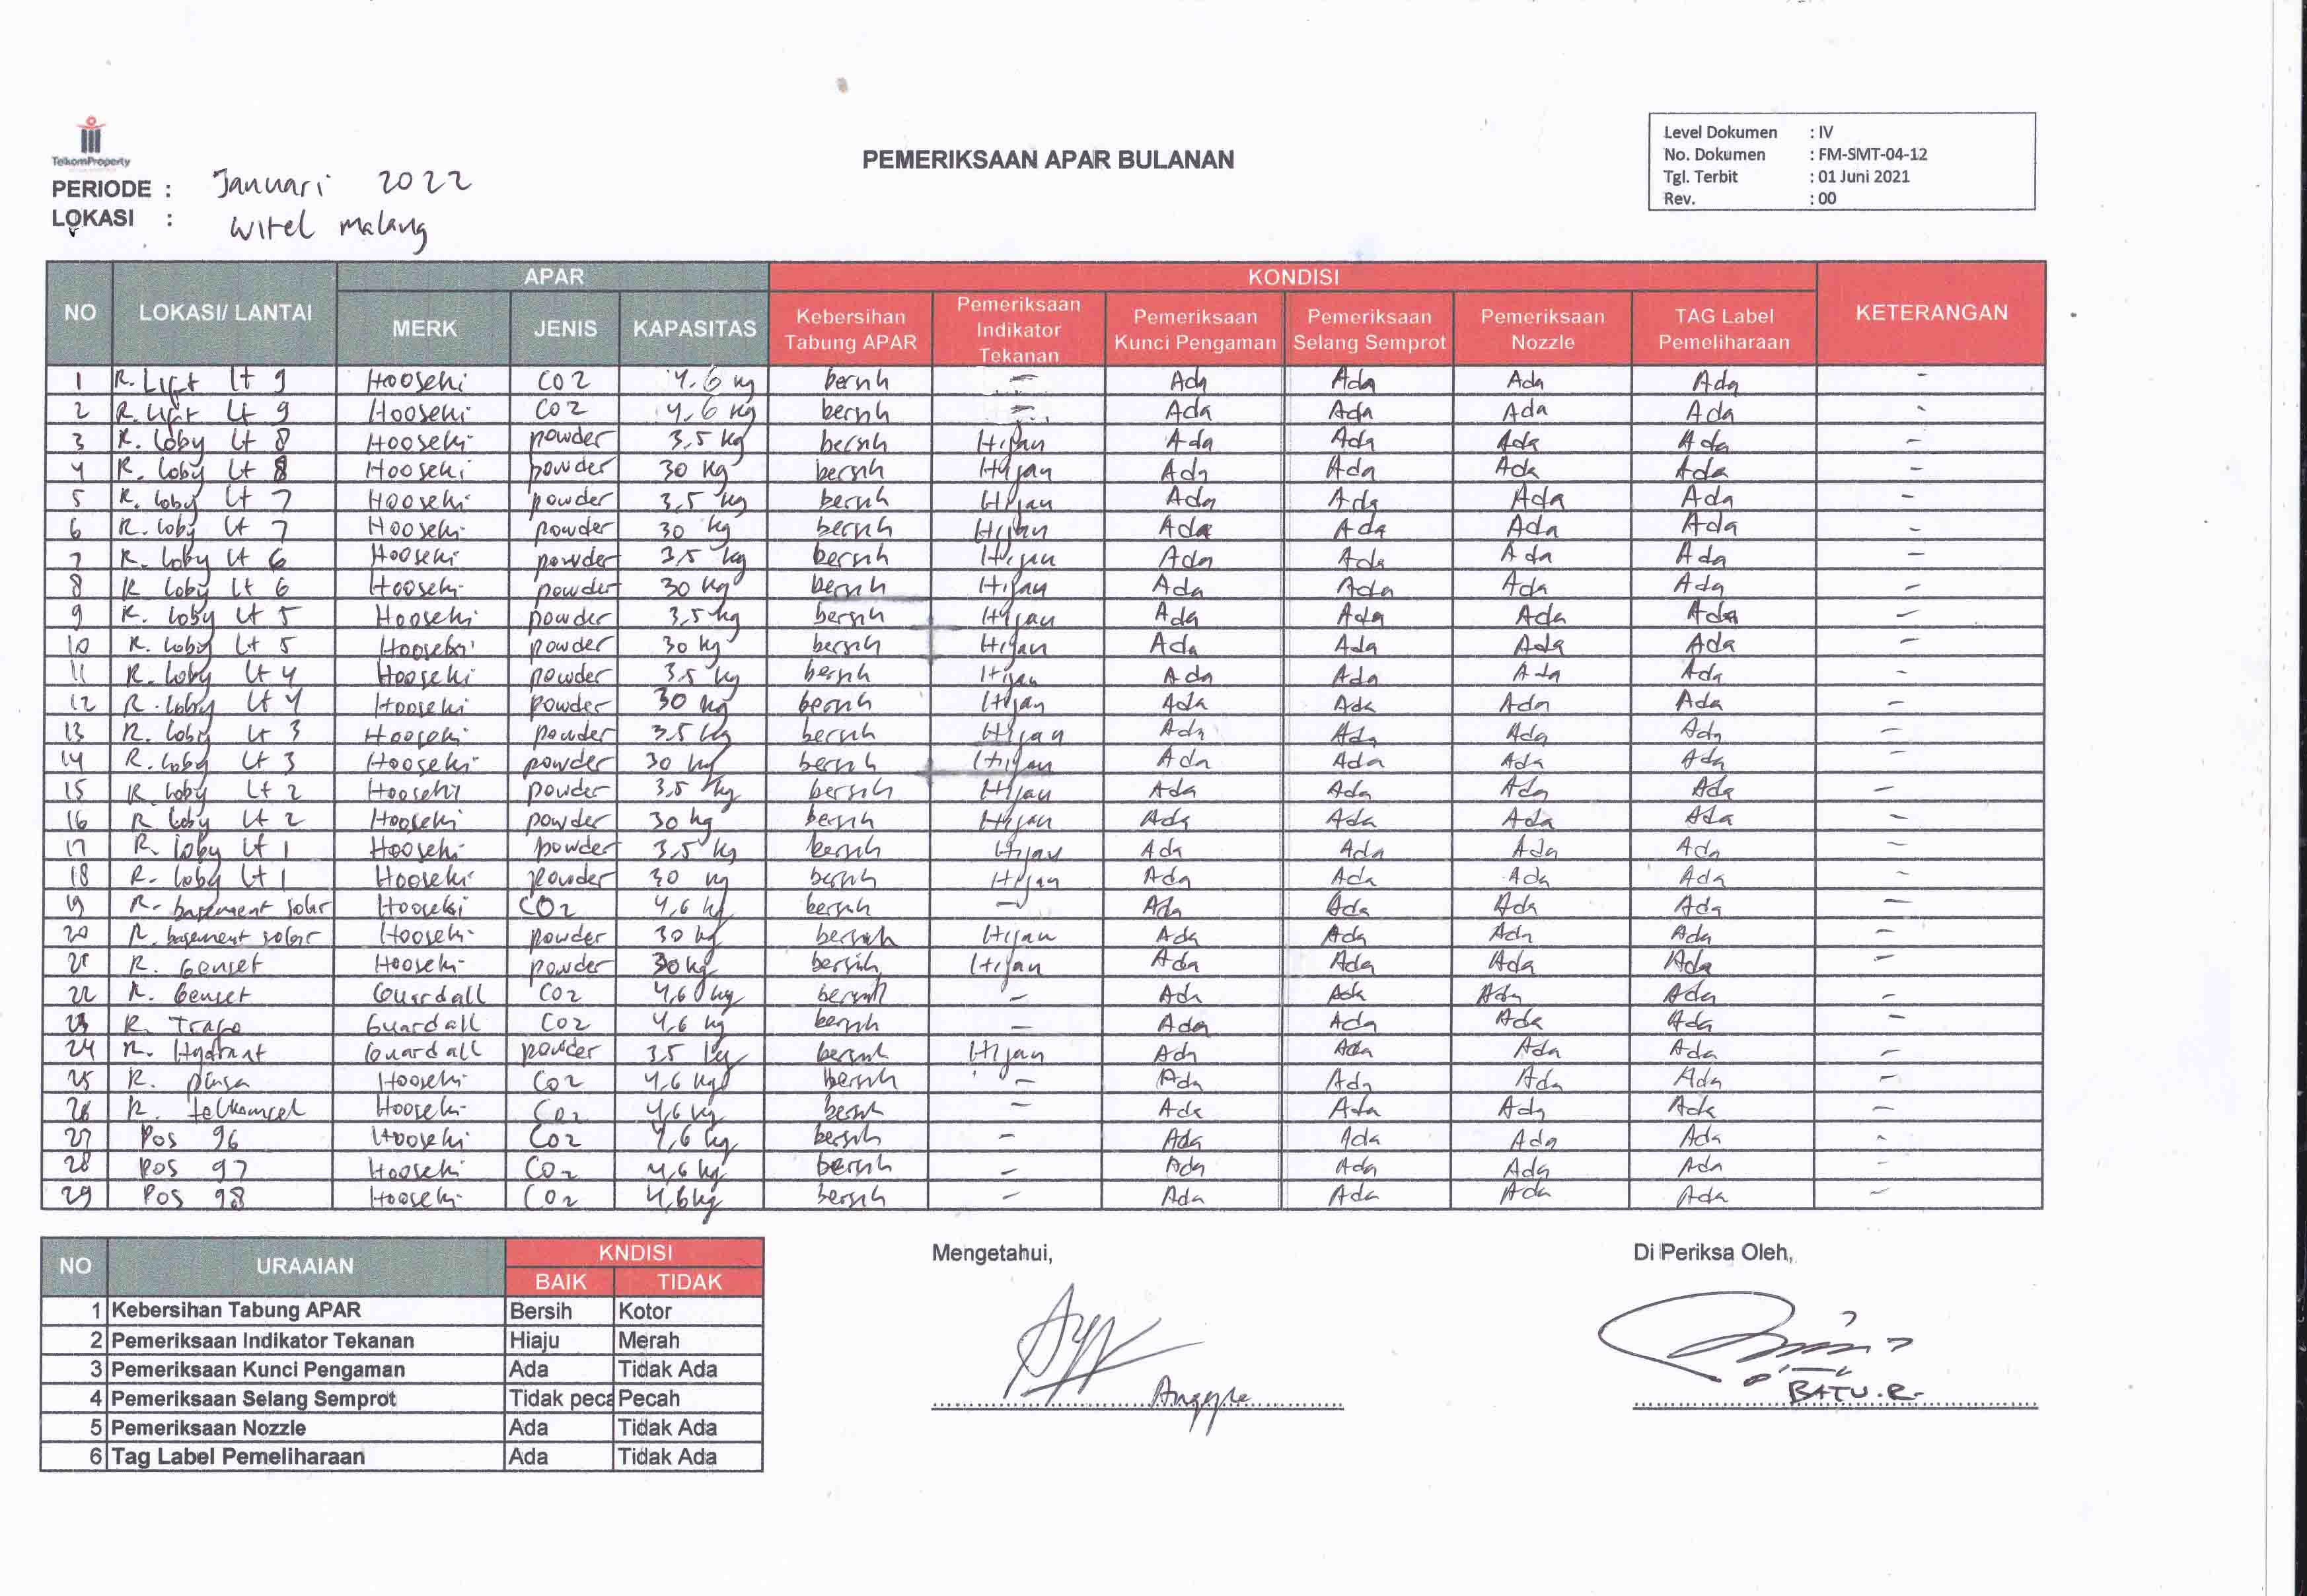 TelkomProperty
PERIODE : Januari 2022
LOKASI : Witel malang
PEMERIKSAAN APAR BULANAN
Level Dokumen : IV
No. Dokumen : FM-SMT-04-12
Tgl. Terbit : 01 Juni 2021
Rev. : 00
NO LOKASI/ LANTAI APAR KONDISI KETERANGAN
MERK JENIS KAPASITAS Kebersihan Tabung APAR Pemeriksaan Indikator Tekanan Pemeriksaan Kunci Pengaman Pemeriksaan Selang Semprot Pemeriksaan Nozzle TAG Label Pemeliharaan
1 R. Lift lt 9 Hooseki CO2 4.6 kg bersih - Ada Ada Ada Ada -
2 R. Lift Lt 9 Hooseki CO2 4,6 kg bersih - Ada Ada Ada Ada -
3 R. Loby Lt 8 Hooseki powder 3,5 kg bersih Hijau Ada Ada Ada Ada -
4 R. Loby Lt 8 Hooseki powder 30 kg bersih Hijau Ada Ada Ada Ada -
5 R. loby Lt 7 Hooseki powder 3,5 kg bersih Hijau Ada Ada Ada Ada -
6 R. loby Lt 7 Hooseki powder 30 kg bersih Hijau Ada Ada Ada Ada -
7 R. Loby Lt 6 Hooseki powder 3,5 kg bersih Hijau Ada Ada Ada Ada -
8 R Loby Lt 6 Hooseki powder 30 kg bersih Hijau Ada Ada Ada Ada -
9 R. Loby Lt 5 Hooseki powder 3,5 kg bersih Hijau Ada Ada Ada Ada -
10 R. Loby Lt 5 Hooseki powder 30 kg bersih Hijau Ada Ada Ada Ada -
11 R. Loby Lt 4 Hooseki powder 3,5 kg bersih Hijau Ada Ada Ada Ada -
12 R. Loby Lt 4 Hooseki powder 30 kg bersih Hijau Ada Ada Ada Ada -
13 R. Loby Lt 3 Hooseki powder 3.5 kg bersih Hijau Ada Ada Ada Ada -
14 R. Loby Lt 3 Hooseki powder 30 kg bersih Hijau Ada Ada Ada Ada -
15 R. Loby Lt 2 Hooseki powder 3,5 kg bersih Hijau Ada Ada Ada Ada -
16 R Loby Lt 2 Hooseki powder 30 kg bersih Hijau Ada Ada Ada Ada -
17 R. loby Lt 1 Hooseki powder 3,5 kg bersih Hijau Ada Ada Ada Ada -
18 R. loby Lt 1 Hooseki powder 30 kg bersih Hijau Ada Ada Ada Ada -
19 R. basement solar Hooseki CO2 4,6 kg bersih - Ada Ada Ada Ada -
20 R. basement solar Hooseki powder 30 kg bersih Hijau Ada Ada Ada Ada -
21 R. Genset Hooseki powder 30 kg bersih Hijau Ada Ada Ada Ada -
22 R. Genset Guardall CO2 4,6 kg bersih - Ada Ada Ada Ada -
23 R. Trafo Guardall CO2 4,6 kg bersih - Ada Ada Ada Ada -
24 R. Hydrant Guardall powder 3.5 kg bersih Hijau Ada Ada Ada Ada -
25 R. Hooseki CO2 4,6 kg bersih - Ada Ada Ada Ada -
26 R. telkomsel Hooseki CO2 4,6 kg bersih - Ada Ada Ada Ada -
27 Pos 96 Hooseki CO2 4,6 kg bersih - Ada Ada Ada Ada -
28 Pos 97 Hooseki CO2 4,6 kg bersih - Ada Ada Ada Ada -
29 Pos 98 Hooseki CO2 4,6 kg bersih - Ada Ada Ada Ada -
NO URAAIAN KNDISI
BAIK TIDAK
1 Kebersihan Tabung APAR Bersih Kotor
2 Pemeriksaan Indikator Tekanan Hiaju Merah
3 Pemeriksaan Kunci Pengaman Ada Tidak Ada
4 Pemeriksaan Selang Semprot Tidak peca Pecah
5 Pemeriksaan Nozzle Ada Tidak Ada
6 Tag Label Pemeliharaan Ada Tidak Ada
Mengetahui,
Di Periksa Oleh,
BATU.R.